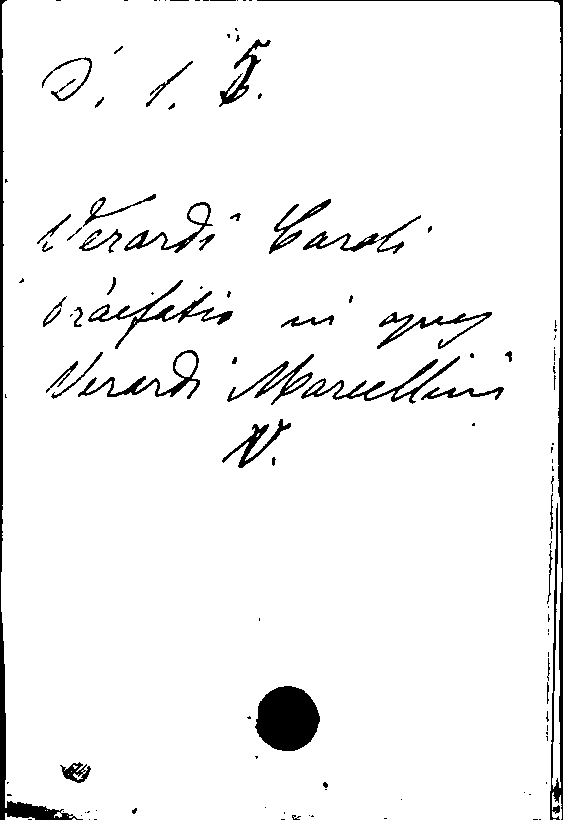 D. 1. 5.
Verardi Caroli
praefatio in opus
Verardi Marcellini
V.